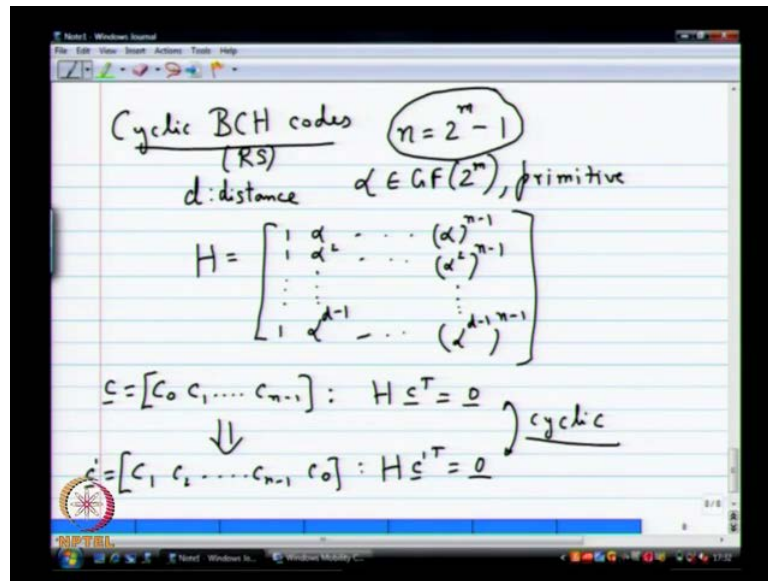 Note1 - Windows Journal
File Edit View Insert Actions Tools Help
Cyclic BCH codes n = 2^m - 1
(RS)
d: distance α ∈ GF(2^m), primitive
H = [ 1 α . . . . (α)^{n-1}
1 α^2 . . . . (α^2)^{n-1}
⋮ ⋮ ⋮
1 α^{d-1} - . . . (α^{d-1})^{n-1} ]
c = [c_0 c_1 .... c_{n-1}] : H c^T = 0
⇓ cyclic
c' = [c_1 c_2 ..... c_{n-1} c_0] : H c'^T = 0
8/8
NPTEL
Note1 - Windows Jo... Windows Mobility C... 17:32